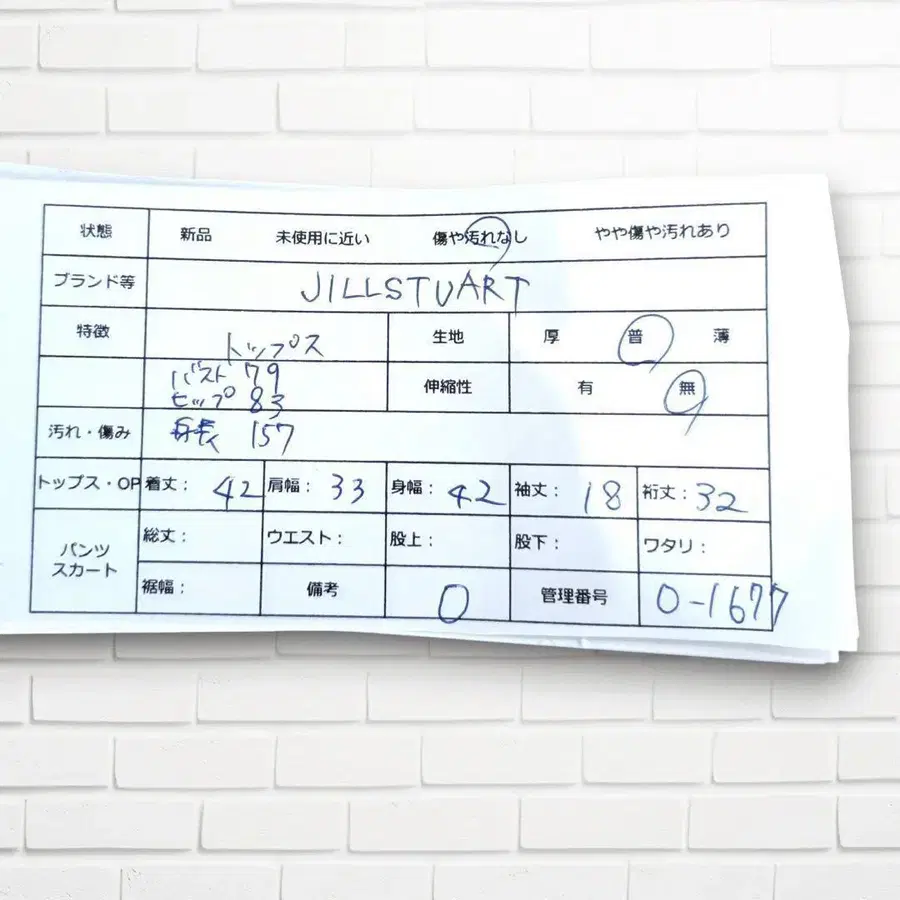 状態 新品 未使用に近い 傷や汚れなし やや傷や汚れあり
ブランド等 JILLSTUART
特徴 トップス 生地 厚 普 薄
バスト 79
ヒップ 83 伸縮性 有 無
汚れ・傷み 身長 157
トップス・OP 着丈: 42 肩幅: 33 身幅: 42 袖丈: 18 裄丈: 32
パンツ スカート 総丈: ウエスト: 股上: 股下: ワタリ:
裾幅: 備考 0 管理番号 0-1677